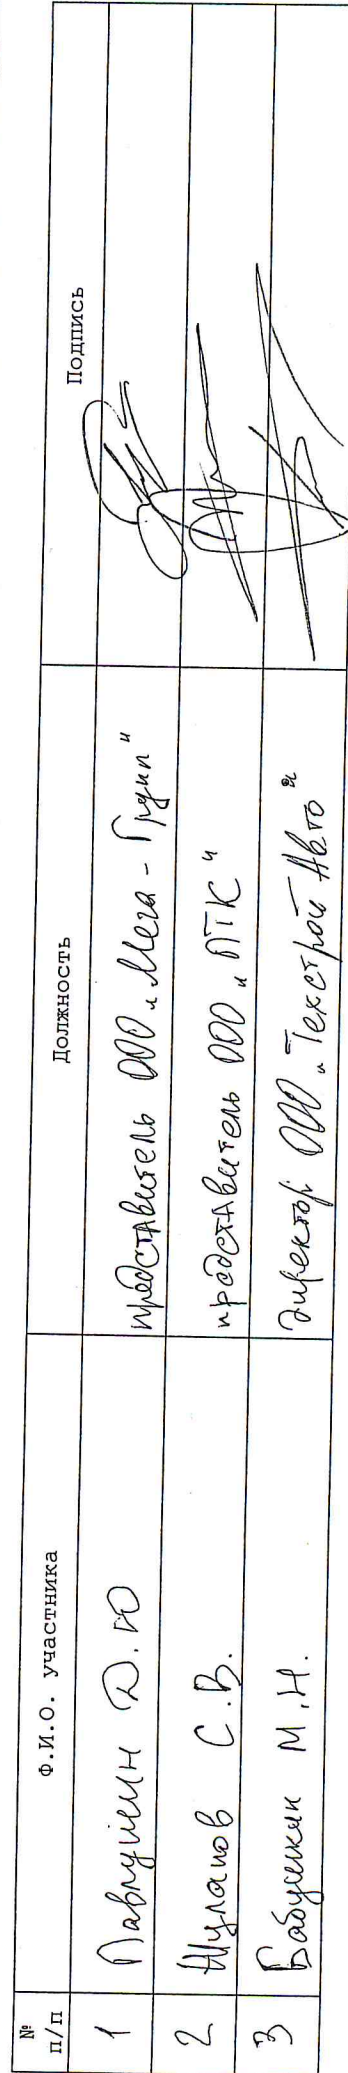 № п/п Ф.И.О. участника Должность Подпись
1 Павлушин Д.Ю представитель ООО „Мега - Групп"
2 С.В. представитель ООО „ПТК"
3 Бабушкин М.Н. директор ООО „Текстрой Авто"